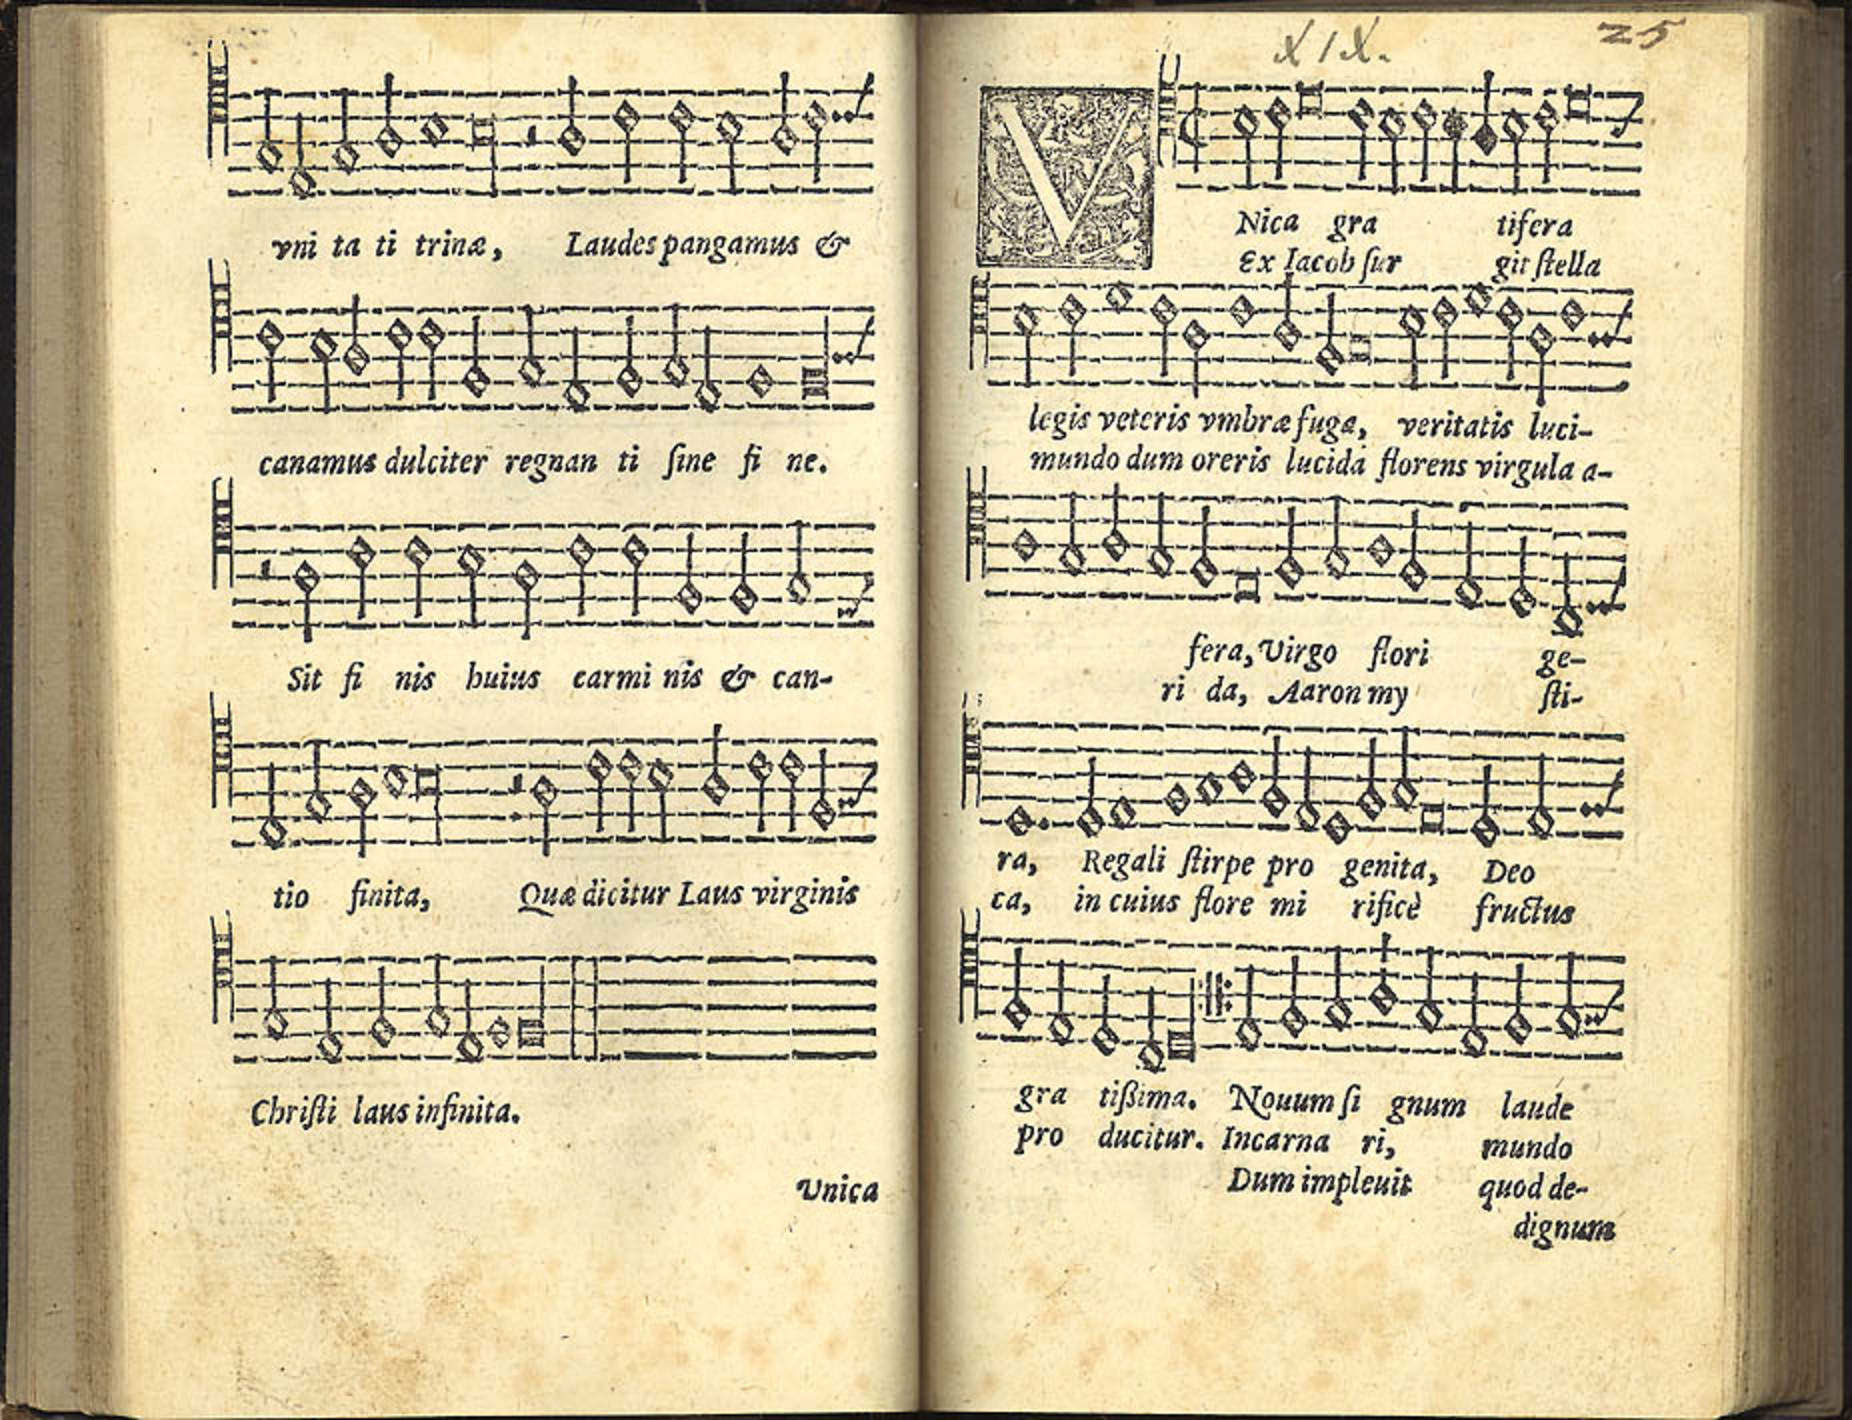 vni ta ti trinæ, Laudes pangamus &
canamus dulciter regnan ti ſine fi ne.
Sit fi nis huius carmi nis & can-
tio finita, Quæ dicitur Laus virginis
Chriſti laus infinita.
Vnica
XIX.
25
VNica gra tifera
Ex Iacob ſur git ſtella
legis veteris vmbræ fuga, veritatis luci-
mundo dum oreris lucida florens virgula a-
fera, Virgo flori ge-
ri da, Aaron my ſti-
ra, Regali ſtirpe pro genita, Deo
ca, in cuius flore mi rificè fructus
gra tißima. Nouum ſi gnum laude
pro ducitur. Incarna ri, mundo
Dum impleuit quod de-
dignum